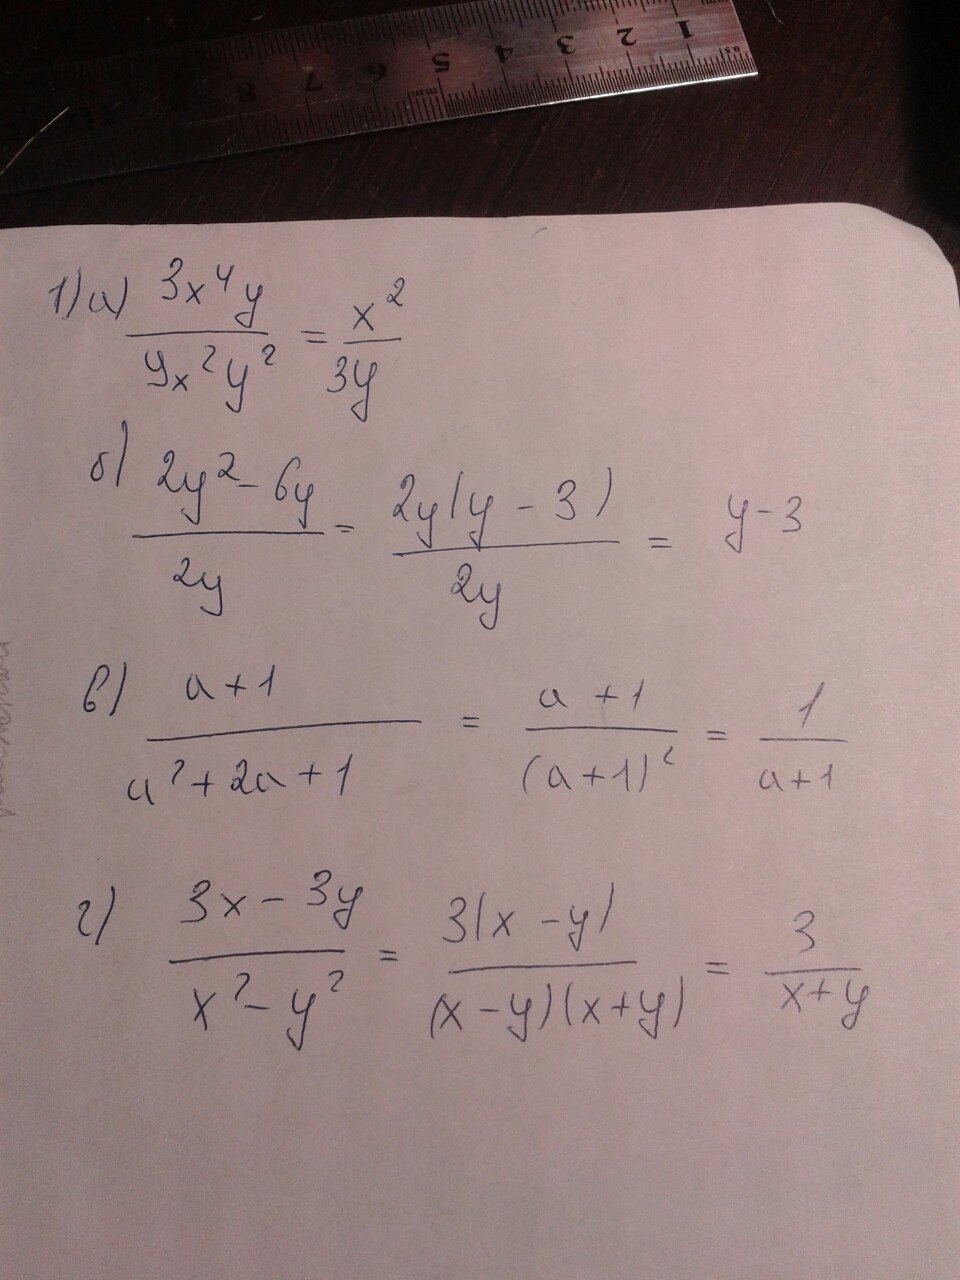 1 2 3 4 5 6 7 8
0.5
mm
1) а) 3x⁴y / 9x²y² = x² / 3y
б) 2y² - 6y / 2y = 2y(y - 3) / 2y = y - 3
в) a + 1 / a² + 2a + 1 = a + 1 / (a + 1)² = 1 / a + 1
г) 3x - 3y / x² - y² = 3(x - y) / (x - y)(x + y) = 3 / x + y